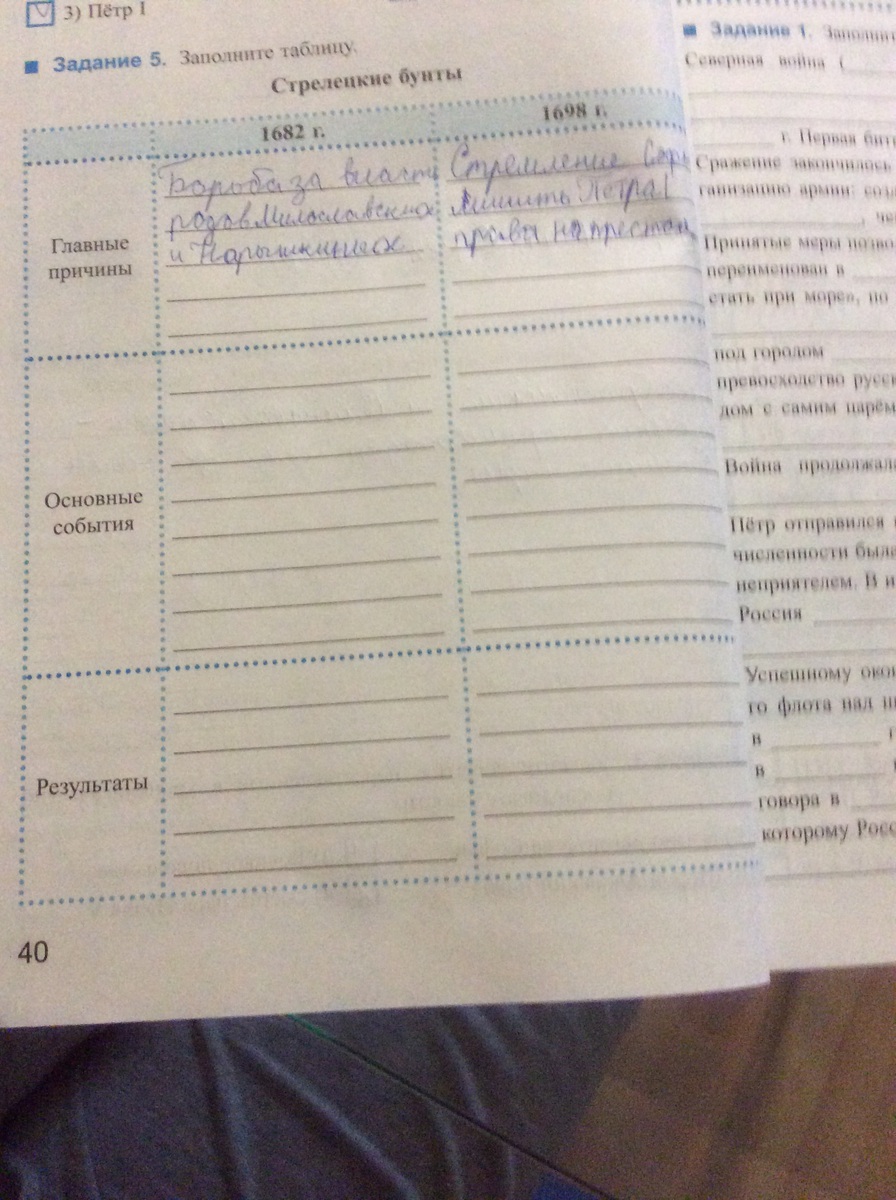 3) Пётр I
Задание 5. Заполните таблицу.
Стрелецкие бунты
1682 г.
1698 г.
Главные
причины
Борьба за власть
родов Милославских
и Нарышкиных
Стремление
лишить Петра I
права на престол
Основные
события
Результаты
40
Задание 1.
Северная война (
г. Первая
Сражение закончилось
армии:
Принятые меры
переименован в
стать при море», но
под городом
превосходство
дом с самим
Война
Пётр отправился
численности была
неприятелем. В
Россия
Успешному
го флота над
в
в
говора в
которому